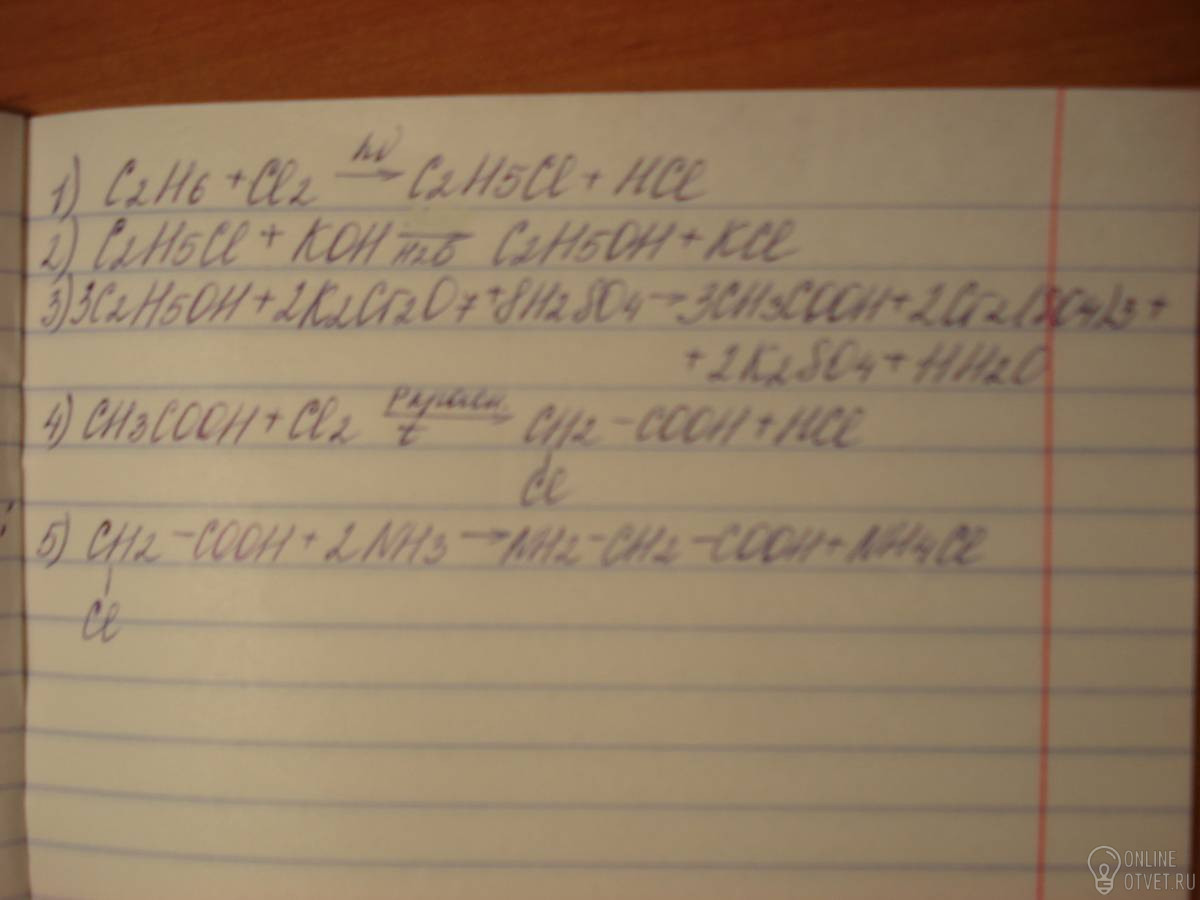 1) C2H6 + Cl2 hν → C2H5Cl + HCl
2) C2H5Cl + KOH → H2O C2H5OH + KCl
3) 3C2H5OH + 2K2Cr2O7 + 8H2SO4 → 3CH3COOH + 2Cr2(SO4)3 +
+ 2K2SO4 + 11H2O
4) CH3COOH + Cl2 P красн. → t CH2 - COOH + HCl
Cl
5) CH2 - COOH + 2NH3 → NH2 - CH2 - COOH + NH4Cl
Cl
ONLINE
OTVET.RU